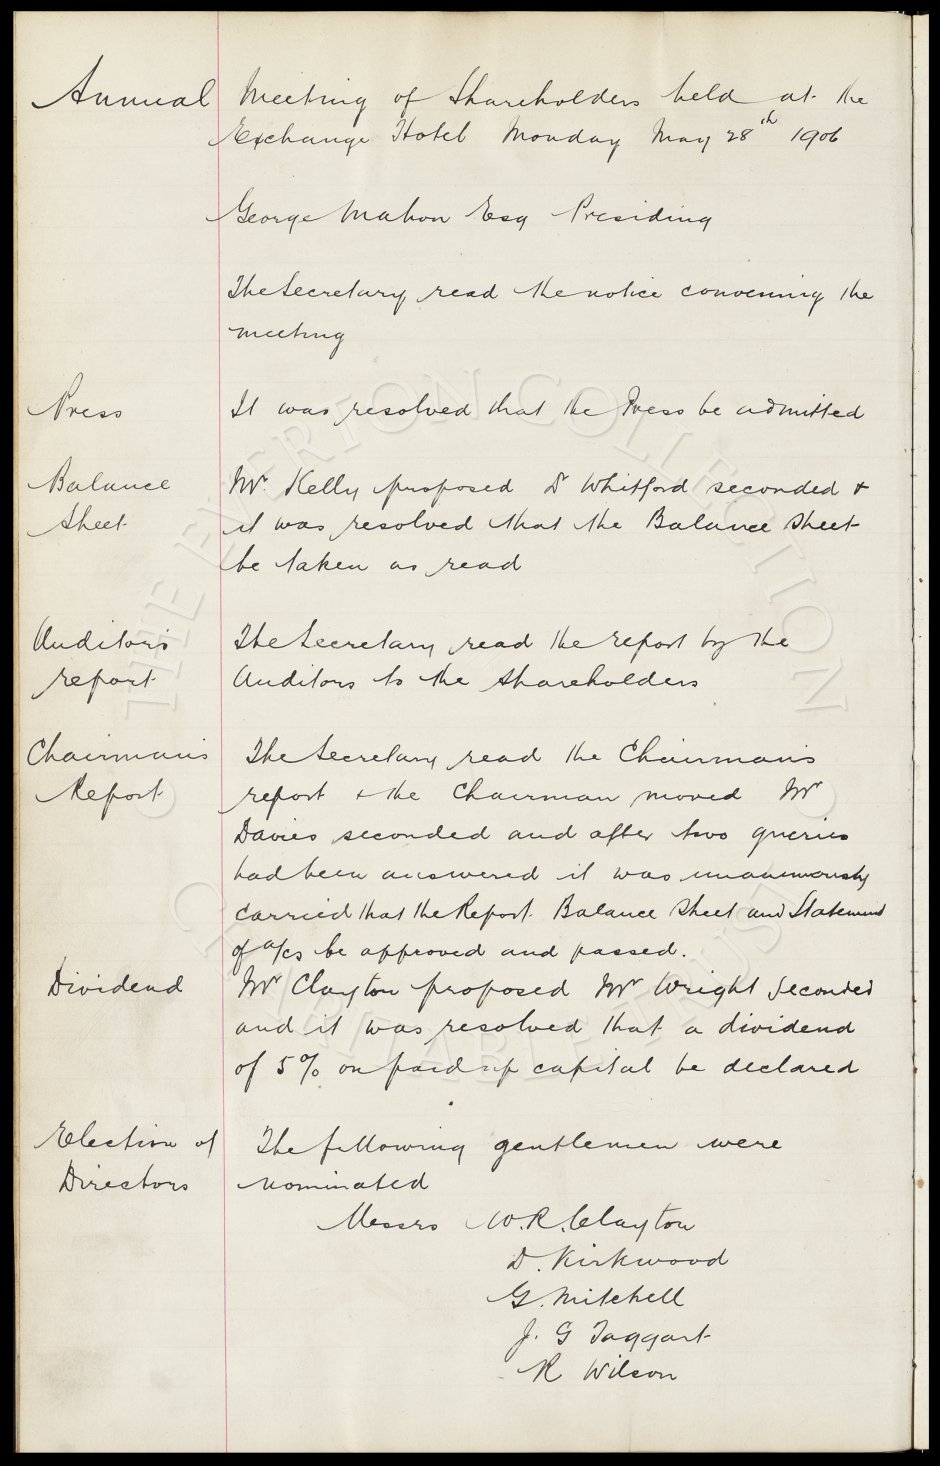 Annual Meeting of Shareholders held at the
Exchange Hotel Monday May 28th 1906
George Mahon Esq Presiding
The Secretary read the notice convening the
meeting
Press It was resolved that the Press be admitted
Balance Mr Kelly proposed Dr Whitford seconded &
Sheet it was resolved that the Balance Sheet
be taken as read
Auditor's The Secretary read the report by the
report Auditors to the Shareholders
Chairman's The Secretary read the Chairman's
Report report & the Chairman moved Mr
Davies seconded and after two queries
had been answered it was unanimously
carried that the Report Balance Sheet and Statement
of a/cs be approved and passed.
Dividend Mr Clayton proposed Mr Wright seconded
and it was resolved that a dividend
of 5% on paid up capital be declared
Election of The following gentlemen were
Directors nominated
Messrs W.R. Clayton
D. Kirkwood
G. Mitchell
J. G Taggart
R Wilson
THE EVERTON COLLECTION CHARITABLE TRUST